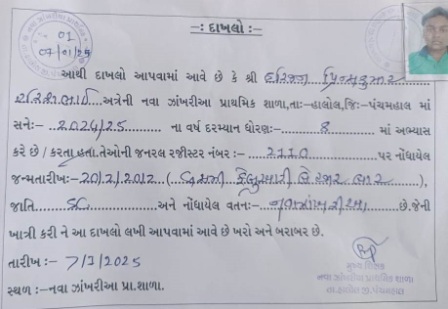 -: દાખલો :-
01
07/01/25
આથી દાખલો આપવામાં આવે છે કે શ્રી હરિજન પ્રિન્સકુમાર
હરિશભાઈ અત્રેની નવા ઝાંખરીઆ પ્રાથમિક શાળા,તા:-હાલોલ,જિ:-પંચમહાલ માં
સને:- 2024/25 ના વર્ષ દરમ્યાન ધોરણ:- 8 માં અભ્યાસ
કરે છે / કરતા હતા.તેઓની જનરલ રજીસ્ટર નંબર :- 2110 પર નોંધાયેલ
જન્મતારીખ:- 20/2/2012 ( વીસમી ફેબ્રુઆરી બે હજાર બાર ),
જાતિ SC અને નોંધાયેલ વતન:- છે.જેની
ખાત્રી કરી ને આ દાખલો લખી આપવામાં આવે છે ખરો અને બરાબર છે.
તારીખ:- 7/1/2025
સ્થળ :-નવા ઝાંખરીઆ પ્રા.શાળા.
મુખ્ય શિક્ષક
નવા ઝાંખરીઆ પ્રાથમિક શાળા
તા.હાલોલ જી.પંચમહાલ